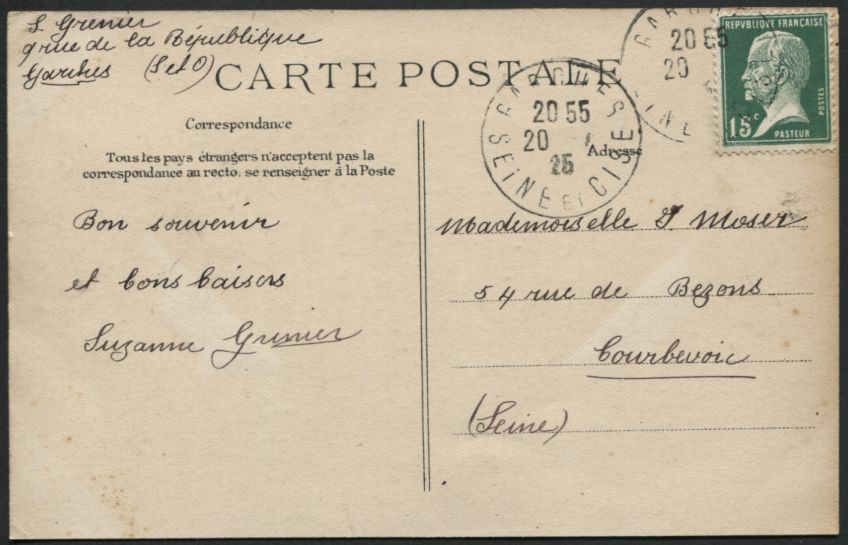 S. Grenier
9 rue de la République
Garches (S et O)
CARTE POSTALE
Correspondance
Tous les pays étrangers n'acceptent pas la
correspondance au recto, se renseigner à la Poste
Bon souvenir
et bons baisers
Suzanne Grenier
GARCHES
20 55
20
25
SEINE ET OISE
GARCHES
20 55
20
SEINE
REPVBLIQUE FRANÇAISE
15c
POSTES
PASTEUR
Adresse
Mademoiselle J Moser
54 rue de Bezons
Courbevoie
(Seine)